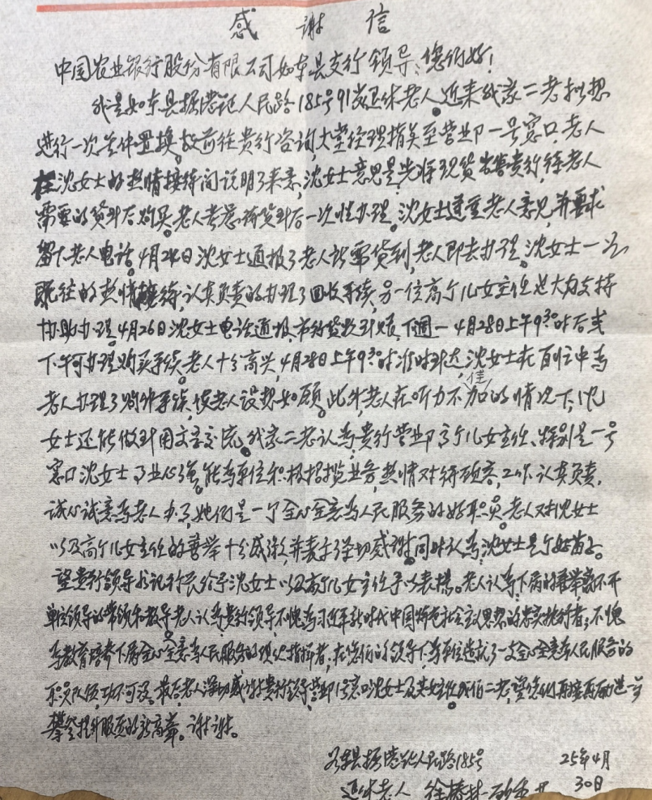 感谢信
中国农业银行股份有限公司如东县支行领导:您们好!
我是如东县掘港镇人民路185号91岁退休老人。近来我家二老拟想
进行一次金件置换,故前往贵行咨询,大堂经理指点至营业部一号窗口,老人
在沈女士的热情接待间说明了来意,沈女士意思是先将现货出售贵行,待老人
需要的货到后购买。老人考虑待货到后一次性办理。沈女士遵重老人意见,并要求
留下老人电话。4月24日沈女士通报了老人所需货到,老人即去办理。沈女士一如
既往的热情接待,认真负责的办理了回收手续,另一位高个儿女主任也大力支持
协助办理。4月26日沈女士电话通报,下週一4月28日上午9:30时后或
下午可办理购买手续。老人十分高兴,4月28日上午9:30时准时到达,沈女士在百忙中为
老人办理了购件手续,使老人设想如愿。此外老人在听力不佳的情况下,沈
女士还能做到用文字交流。我家二老认为贵行营业部高个儿女主任、特别是一号
窗口沈女士事业心强,能为单位积极招揽业务,热情对待顾客,工作认真负责,
诚心诚意为老人办事,她们是一个全心全意为人民服务的好职员。老人对沈女士
以及高个儿女主任的善举十分感激,并表示深切感谢。同时认为,沈女士是个好苗子。
望贵行领导书记行长给予沈女士以及高个儿女主任予以表扬。老人认为下属的善举离不开
单位领导的带领和教导。老人认为贵行领导不愧为习近平新时代中国特色社会主义思想的忠实执行者;不愧
为教育培养下属全心全意为人民服务的现代指挥者,在您们的领导下为单位造就了一支全心全意为人民服务的
职员队伍,功不可没。最后老人深切感谢贵行领导、营业部1号窗口沈女士及女主任。我们二老,望您们再接再厉进一步
攀登提升服务的新高峰。谢谢。
如东县掘港镇人民路185号 25年4月
退休老人 徐 30日